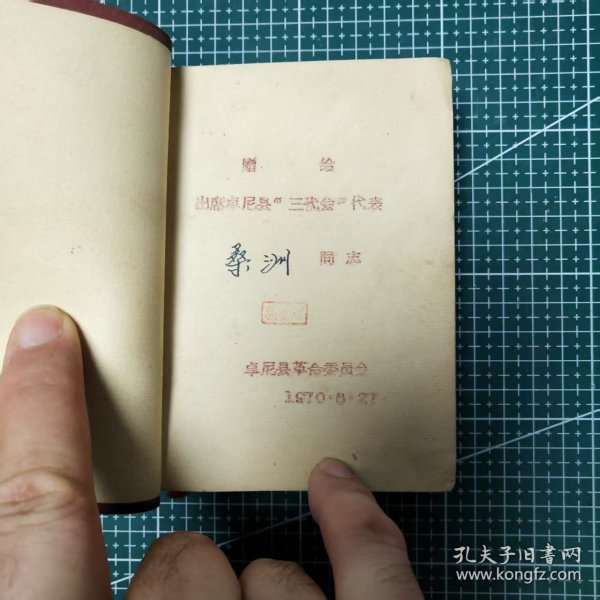 赠 给
出席卓尼县“三代会”代表
桑洲 同志
卓尼县革命委员会
1970·9·27
孔夫子旧书网
www.kongfz.com